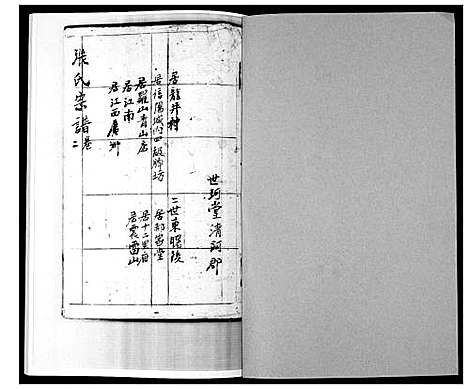 世珂堂清河郡
居龍井村
居信陽城内四級牌坊
居羅山青山店
居江南
居江西廣鄉
二世東
居郝家堂
居十二里庙
居震雷山
張氏宗譜
卷二